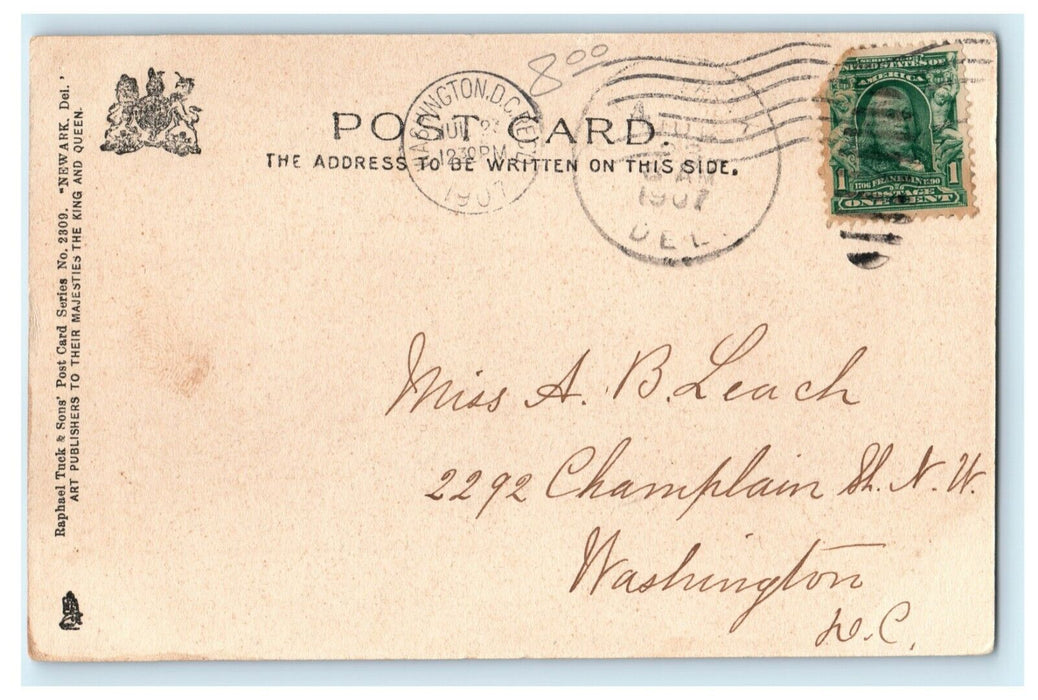 8.00
POST CARD.
THE ADDRESS TO BE WRITTEN ON THIS SIDE.
WASHINGTON, D.C.
12 30 PM
1907
1907
DEL.
UNITED STATES OF
AMERICA
1
1706 FRANKLIN 1790
POSTAGE
ONE CENT
Raphael Tuck & Sons' Post Card Series No. 2309. "NEWARK, Del."
ART PUBLISHERS TO THEIR MAJESTIES THE KING AND QUEEN.
Miss A. B. Leach
2292 Champlain St. N. W.
Washington
D. C.